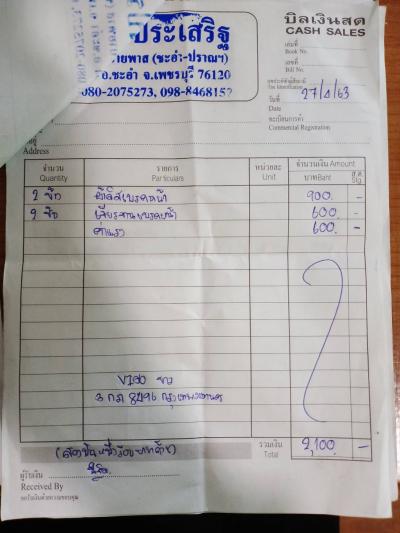 ประเสริฐ
ายพาส (ชะอำ-ปราณฯ)
อ.ชะอำ จ.เพชรบุรี 76120
080-2075273, 098-8468152
บิลเงินสด
CASH SALES
เล่มที่
Book No.
เลขที่
Bill No.
เลขประจำตัวผู้เสียภาษี
Tax Identification
วันที่ 27/4/63
Date
ทะเบียนการค้า
Commercial Registration
Address
จำนวน รายการ หน่วยละ จำนวนเงิน Amount
Quantity Particulars Unit บาท Baht ส.ต. Stg.
2 900. -
2 600. -
ค่าแรง 600. -
VIGO
3 กภ 8496 กรุงเทพมหานคร
(สองพันหนึ่งร้อยบาทถ้วน) รวมเงิน 2,100 -
Total
ผู้รับเงิน
Received By
ขอรับเงินด้วยความขอบคุณ